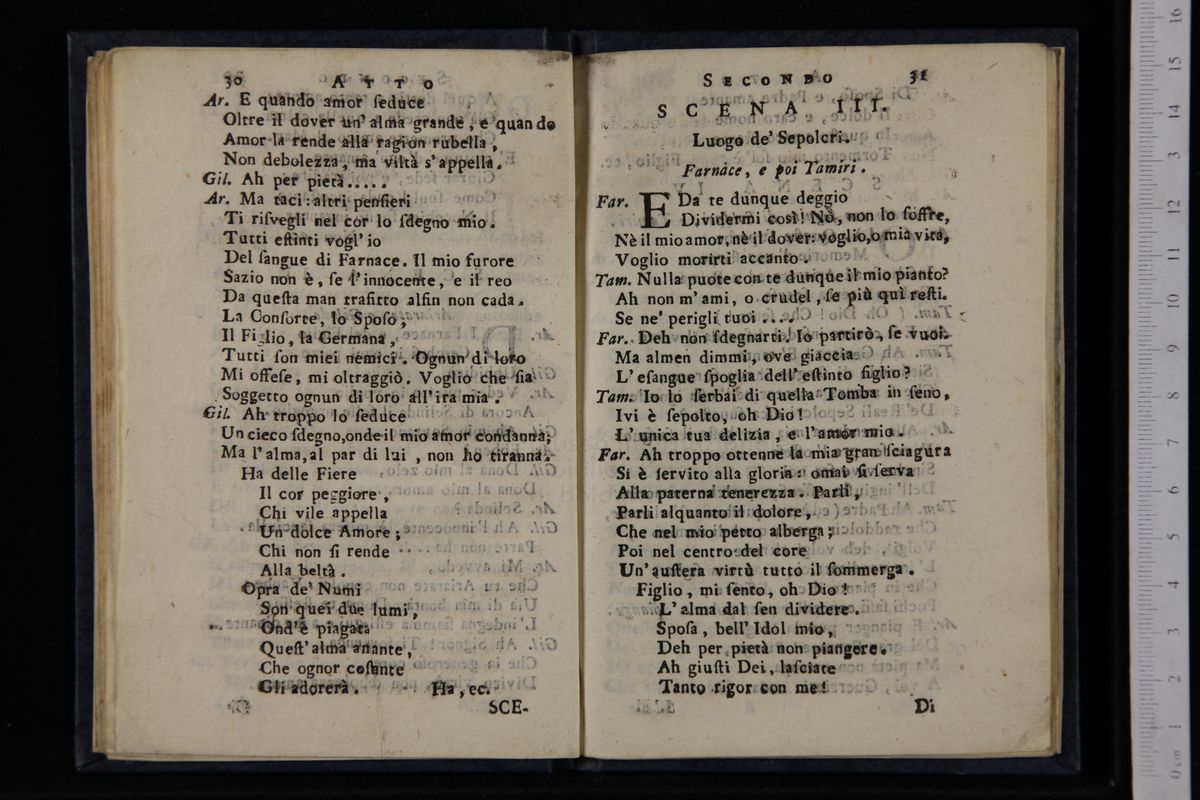 30 ATTO
Ar. E quando amor ſeduce
Oltre il dover un' alma grande, e quando
Amor la rende alla ragion rubella,
Non debolezza, ma viltà s'appella.
Gil. Ah per pietà.....
Ar. Ma taci: altri penſieri
Ti riſvegli nel cor lo ſdegno mio.
Tutti eſtinti vogl' io
Del ſangue di Farnace. Il mio furore
Sazio non è, ſe l'innocente, e il reo
Da queſta man trafitto alfin non cada.
La Conſorte, lo Spoſo,
Il Figlio, la Germana,
Tutti ſon miei nemici. Ognun di loro
Mi offeſe, mi oltraggiò. Voglio che ſia
Soggetto ognun di loro all'ira mia.
Gil. Ah troppo lo ſeduce
Un cieco ſdegno, onde il mio amor condanna;
Ma l'alma, al par di lui, non hò tiranna.
Ha delle Fiere
Il cor peggiore,
Chi vile appella
Un dolce Amore;
Chi non ſi rende
Alla beltà.
Opra de' Numi
Son quei due lumi,
Ond'è piagata
Queſt' alma amante,
Che ognor coſtante
Gli adorerà. Ha, ec.
SCE-
SECONDO 31
SCENA III.
Luogo de' Sepolcri.
Farnace, e poi Tamiri.
Far. E Da te dunque deggio
Dividermi così! Nò, non lo ſoffre,
Nè il mio amor, nè il dover: voglio, o mia vita,
Voglio morirti accanto.
Tam. Nulla puote con te dunque il mio pianto?
Ah non m'ami, o crudel, ſe più quì reſti.
Se ne' perigli tuoi....
Far. Deh non ſdegnarti. Io partirò, ſe vuoi.
Ma almen dimmi, ove giaccia
L'eſangue ſpoglia dell' eſtinto figlio?
Tam. Io lo ſerbai di quella Tomba in ſeno,
Ivi è ſepolto, oh Dio!
L'unica tua delizia, e l'amor mio.
Far. Ah troppo ottenne la mia gran ſciagura
Si è ſervito alla gloria: omai ſi ſerva
Alla paterna tenerezza. Parli,
Parli alquanto il dolore,
Che nel mio petto alberga;
Poi nel centro del core
Un'auſtera virtù tutto il ſommerga.
Figlio, mi ſento, oh Dio!
L'alma dal ſen dividere.
Spoſa, bell' Idol mio,
Deh per pietà non piangere.
Ah giuſti Dei, laſciate
Tanto rigor con me!
Di